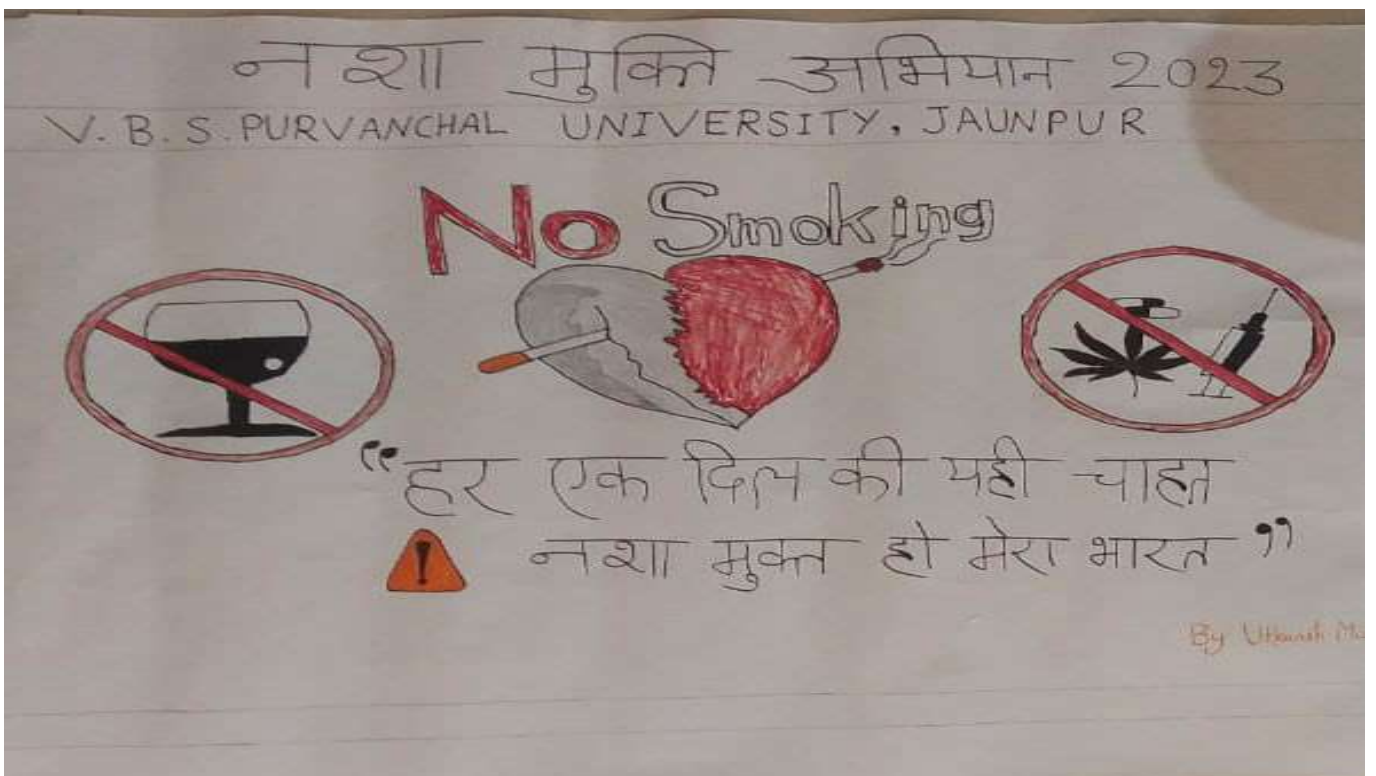 नशा मुक्ति अभियान 2023
V. B. S. PURVANCHAL UNIVERSITY, JAUNPUR
No Smoking
“हर एक दिल की यही चाहत
नशा मुक्त हो मेरा भारत”
By Utkarsh